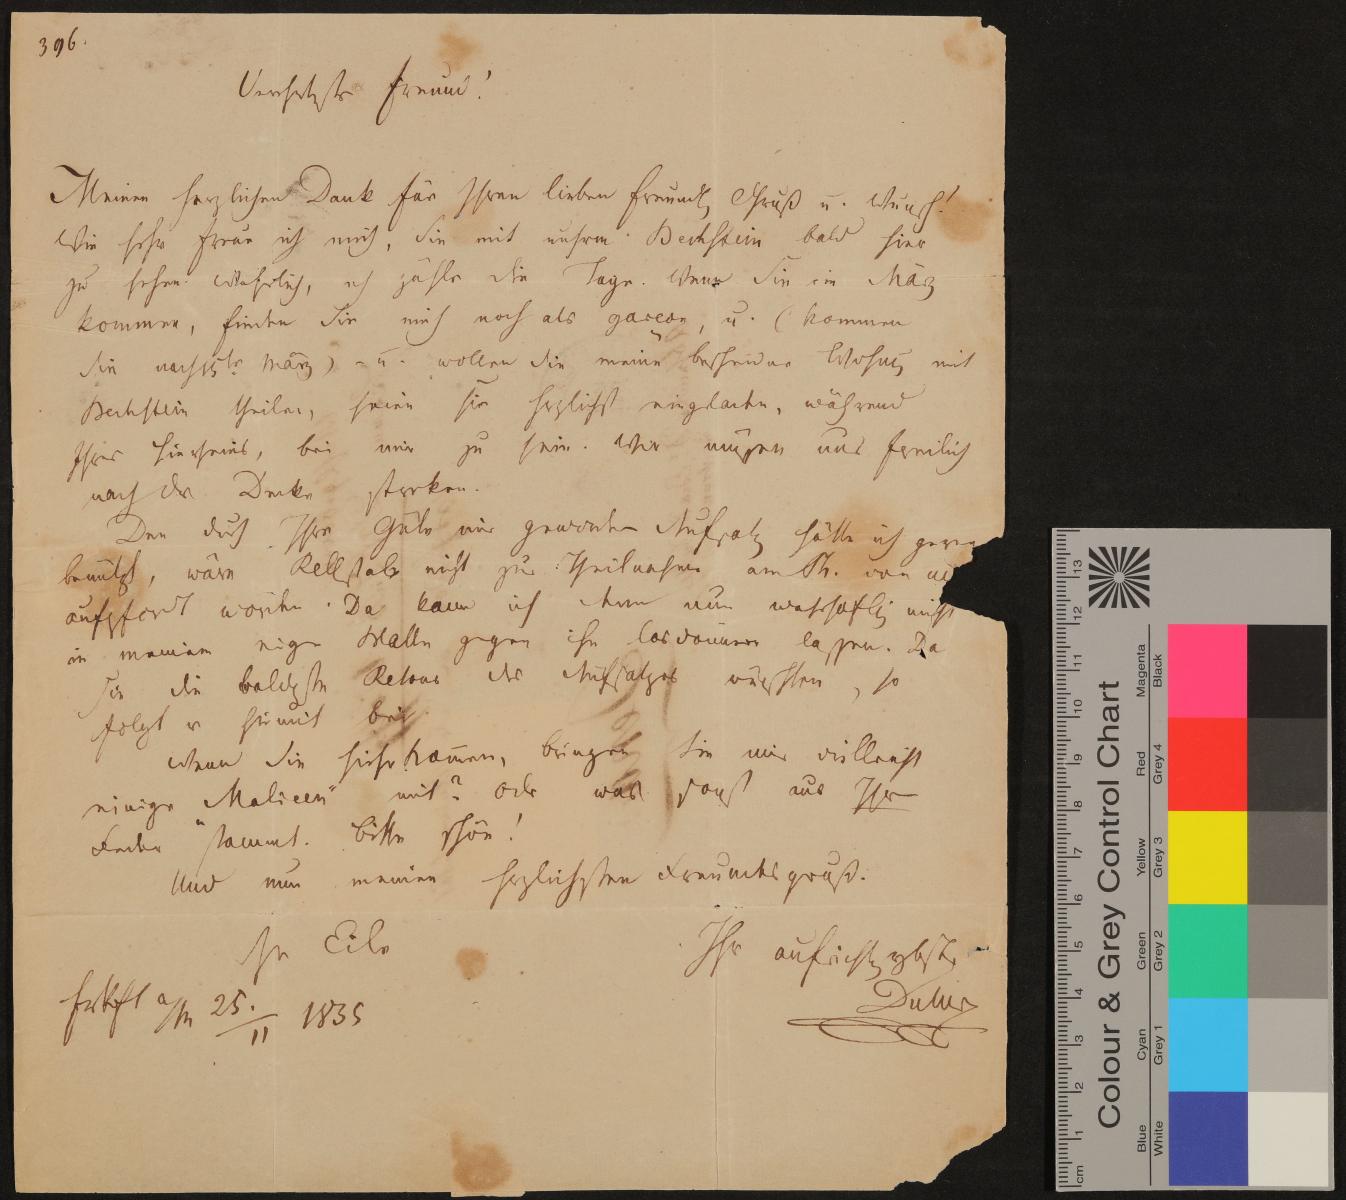 396.
Verehrtester Freund!
Meinen herzlichen Dank für Ihren lieben freundl. Gruß u. Wunsch!
Wie sehr freue ich mich, Sie mit unserm Bechstein bald hier
zu sehen. Wahrlich, ich zähle die Tage. Wenn Sie im März
kommen, finden Sie mich noch als garçon, u. (kommen
Sie nach März) – u. wollen Sie meine bescheidene Wohng mit
Bechstein theilen, seien Sie herzlichst eingeladen, während
Ihres Hierseins, bei mir zu sein. Wir müssen uns freilich
nach der Decke strecken.
Den durch Ihre Güte mir gewordenen Aufsatz hätte ich gerne
benützt, wäre Rellstab nicht zur Theilnahme am Ph. von
aufgefordert worden. Da kann ich denn nun wahrhaftig nicht
in meinem eignen Blatte gegen ihn losdonnern lassen. Da
Sie die baldigste Retour des Aufsatzes wünschten, so
folgt er hiemit bei.
Wenn Sie hieher kommen, bringen Sie mir vielleicht
einige „Malicen" mit? oder was sonst aus Ihrer
Feder stammt. Bitte schön!
Und nun meinen herzlichsten Freundesgruß.
In Eile
Ihr aufrichtig ergebenster
Duller
Frkft a/M 25./II 1835
Colour & Grey Control Chart
Blue Cyan Green Yellow Red Magenta
White Grey 1 Grey 2 Grey 3 Grey 4 Black
cm 1 2 3 4 5 6 7 8 9 10 11 12 13